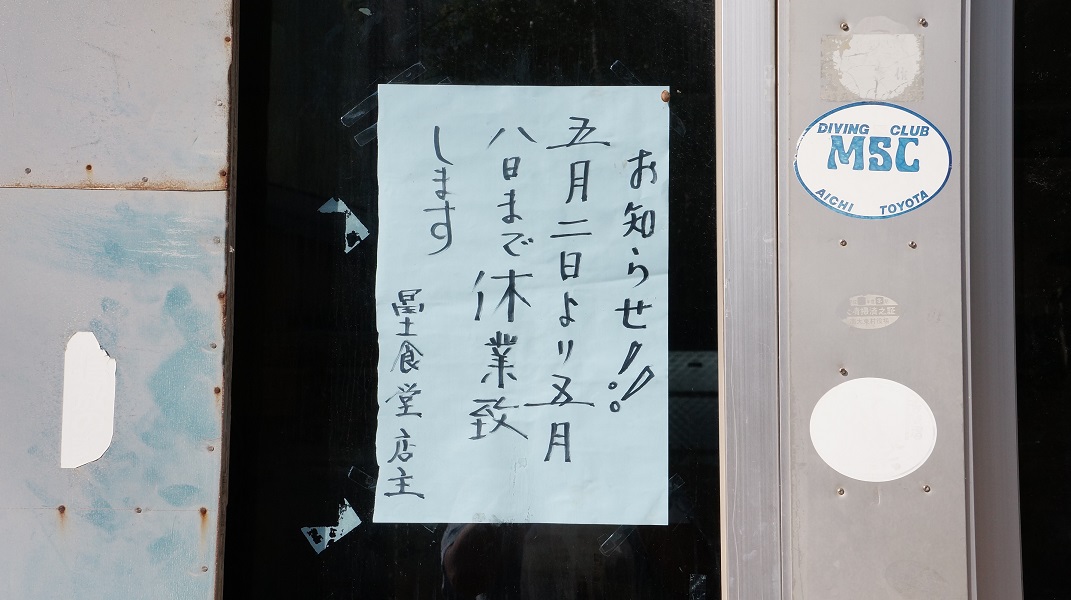 お知らせ!!
五月二日より五月
八日まで休業致
します
冨士食堂 店主
DIVING CLUB
MSC
AICHI TOYOTA